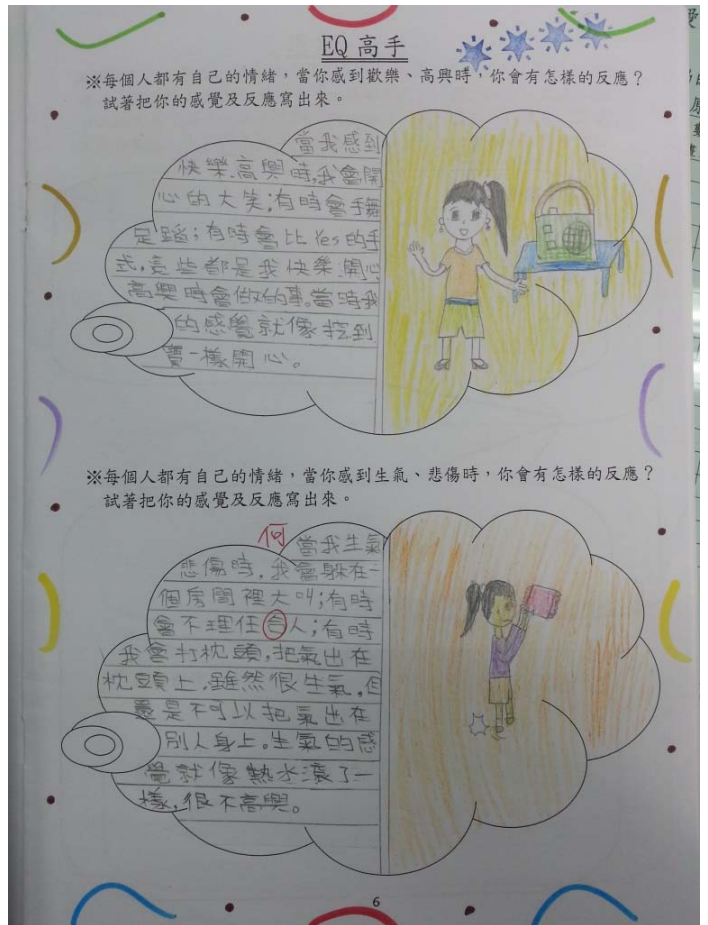 EQ 高手
※每個人都有自己的情緒，當你感到歡樂、高興時，你會有怎樣的反應？
試著把你的感覺及反應寫出來。
當我感到
快樂.高興時,我會開
心的大笑;有時會手舞
足蹈;有時會比Yes的手
式,這些都是我快樂.開心
高興時會做的事。當時我
的感覺就像挖到
寶一樣開心。
※每個人都有自己的情緒，當你感到生氣、悲傷時，你會有怎樣的反應？
試著把你的感覺及反應寫出來。
何
當我生氣
悲傷時,我會躲在一
個房間裡大叫;有時
會不理任合人;有時
我會打枕頭,把氣出在
枕頭上.雖然很生氣.但
還是不可以把氣出在
別人身上。生氣的感
覺就像熱水滾了一
樣,很不高興。
6